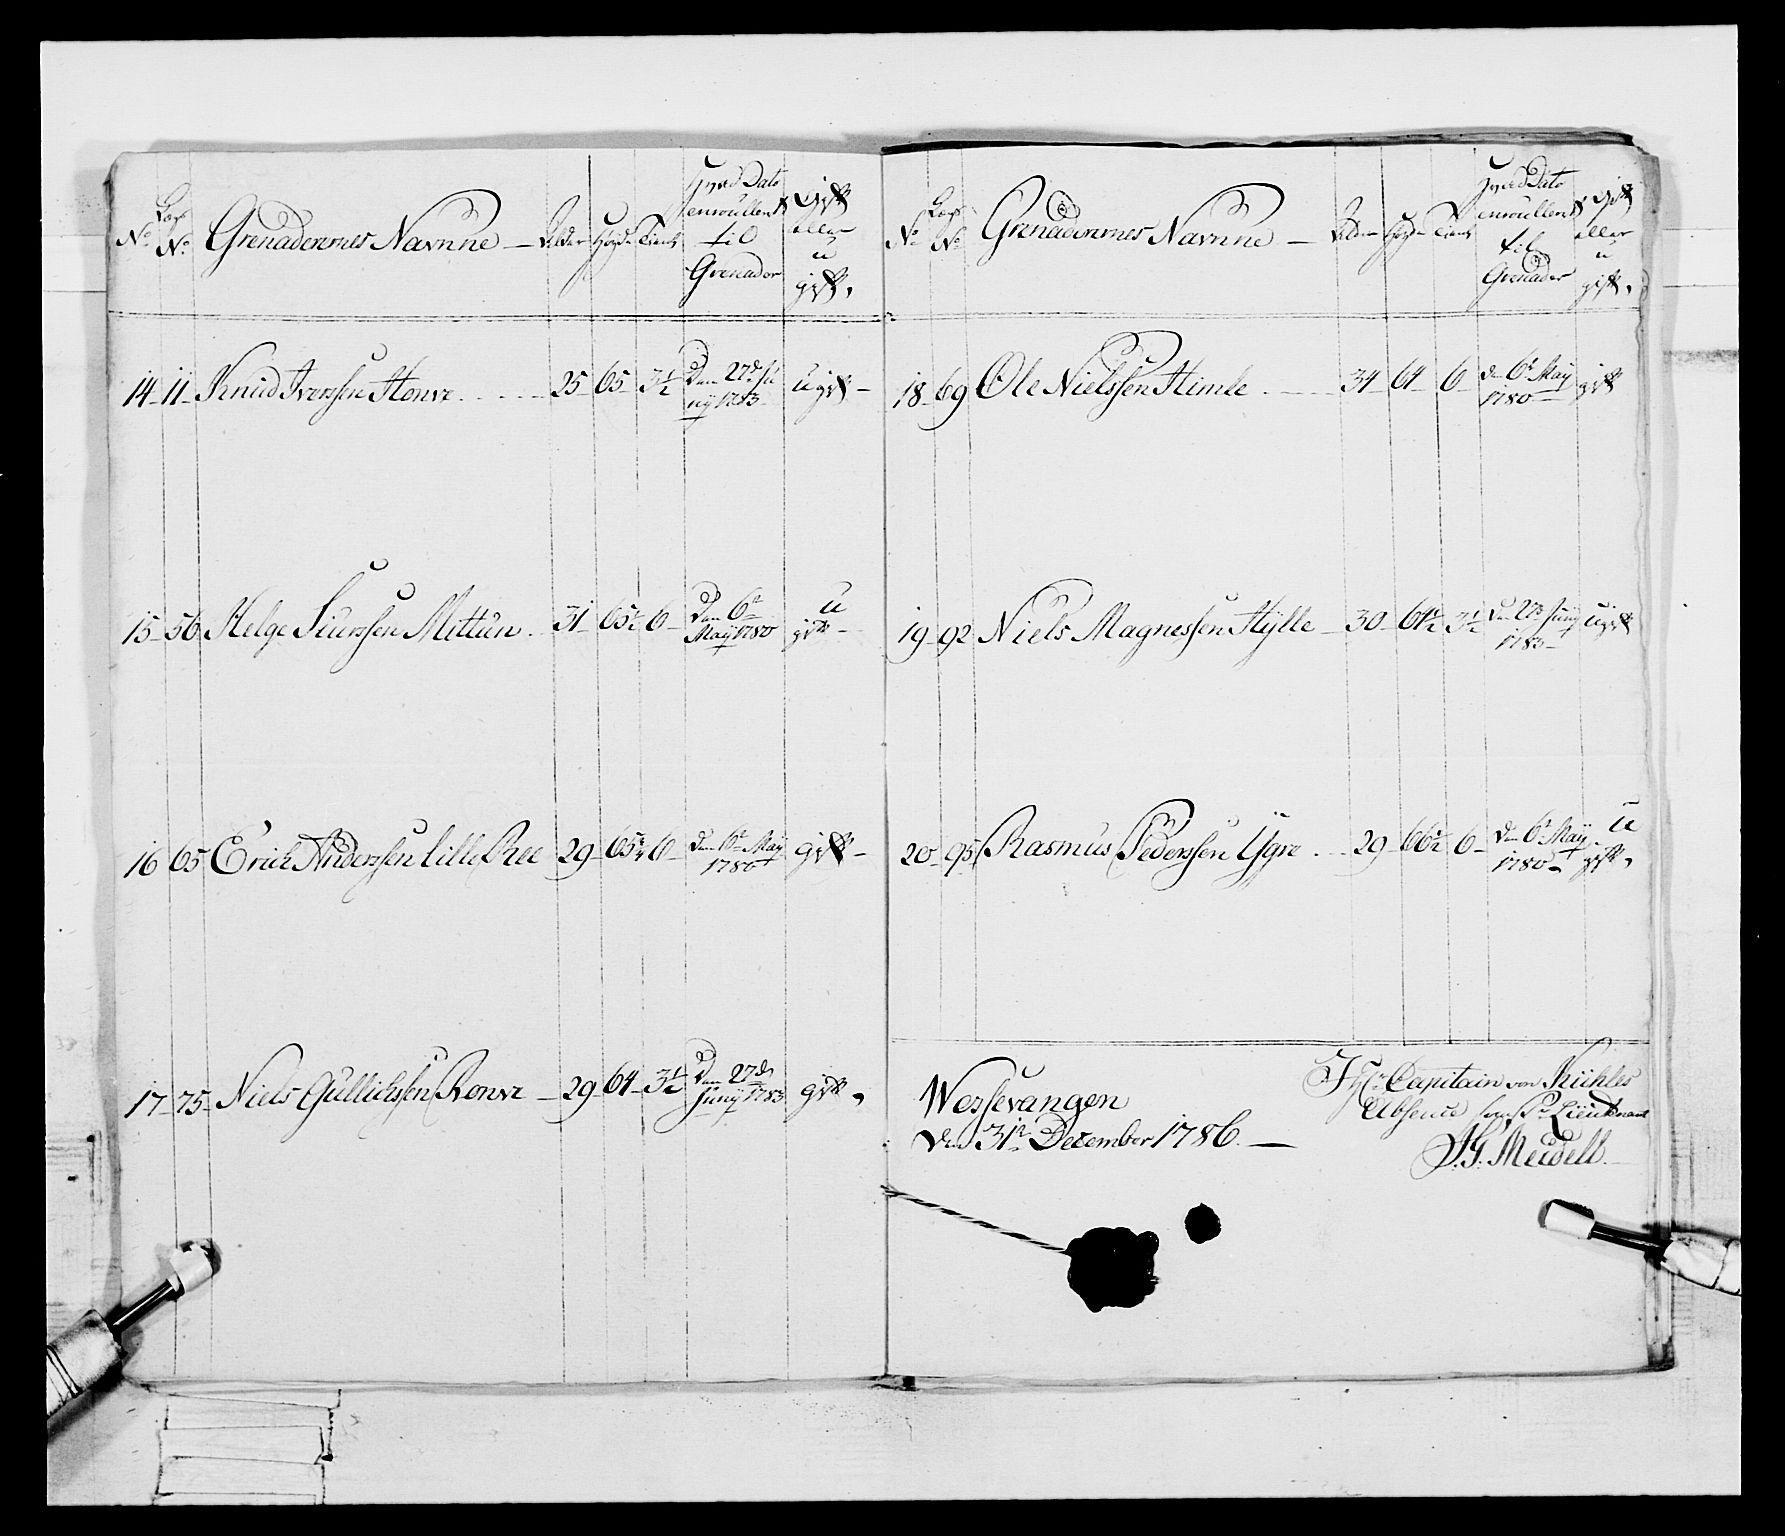 No
Lægs No
Grenaderernes Navnne —
Alder
Høyde
Tient
Hvad Dato enroullert til Grenader
Gift eller u gift.
14 - 11 - Knud Iverssen Honve . . . 25 - 65 - 3½ Den 27de Junÿ 1783 - Ugift -
15 - 56 Helge Siurssen Mittun . 31 - 65½ 6 - Den 6te Maÿ 1780 U gift -
16 65 Erich Anderssen Lille Ree 29 - 65¾ 6 - den 6te Maÿ 1780 gift -
17 - 75 - Niels Gullichssen Ronve - 29 - 64 - 3½ Den 27de Junÿ 1783 gift .
No
Lægs No
Grenaderernes Navnne —
Alder
Høyde
Tient
Hvad Dato enroullert til Grenader
Gift eller u gift.
18 - 69 Ole Nielssen Himle . — 34 - 64 - 6 - den 6te Maÿ 1780 - gift
19 - 92 Niels Magnessen Hÿlle - 30 - 64½ 3½ den 27de Junÿ 1783 - Ugift
20 - 95 Rasmus Pederssen Ygre . . - 29 - 66½ 6 - den 6te Maÿ 1780 - U gift .
Wossevangen
den 31te December 1786. —
I Hr Capitain von Kühles
Absence som Pr. Lieutenant
J. G. Meidell.